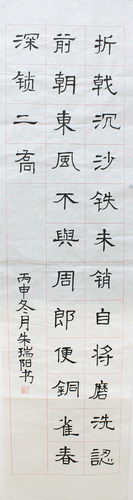 折戟沉沙铁未销自将磨洗認
前朝東風不與周郎便銅雀春
深锁二喬
丙申冬月朱瑞阳书